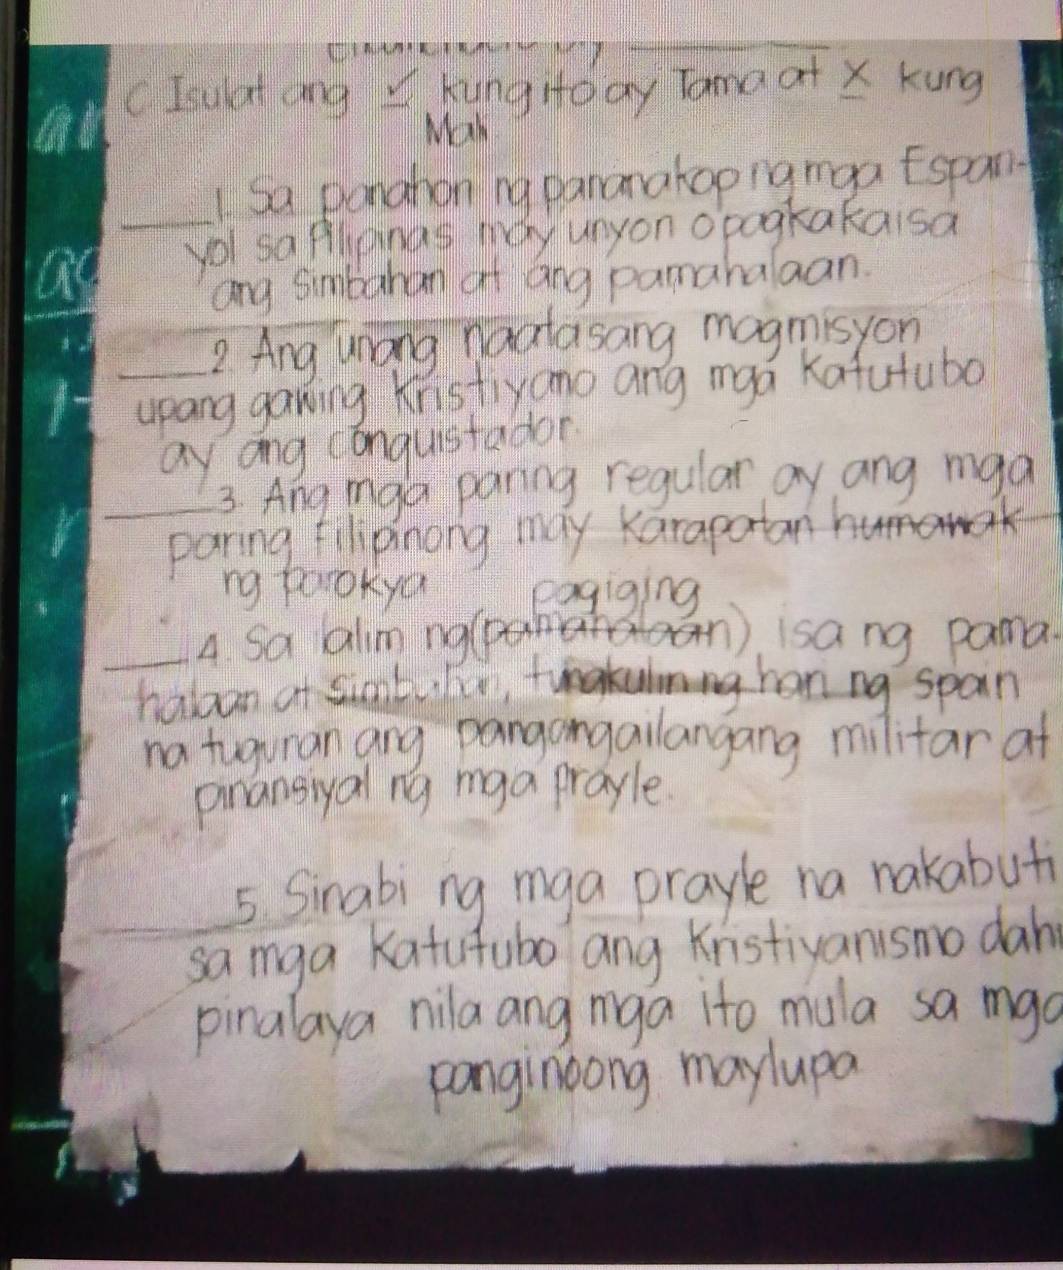 C Isulat ang ✓ kung ito ay Tama at X kung
Mali
1. Sa panahon ng pananakop ng mga Españ-
yol sa Pilipinas may unyon o pagkakaisa
ang simbahan at ang pamahalaan.
2. Ang unang naatasang magmisyon
upang gawing Kristiyano ang mga Katutubo
ay ang conquistador.
3. Ang mga paring regular ay ang mga
paring filipinong may Karapatan humawak
ng parokya
pagiging
4. Sa ilalim ng (pamahalaan), isa ng pama
halaan at simbahan, tungkulin ng han ng spain
na tuguran ang pangangailangang militar at
pinansiyal ng mga prayle.
5. Sinabi ng mga prayle na nakabuti
sa mga Katutubo ang Kristiyanismo dahi
pinalaya nila ang mga ito mula sa mga
panginoong maylupa